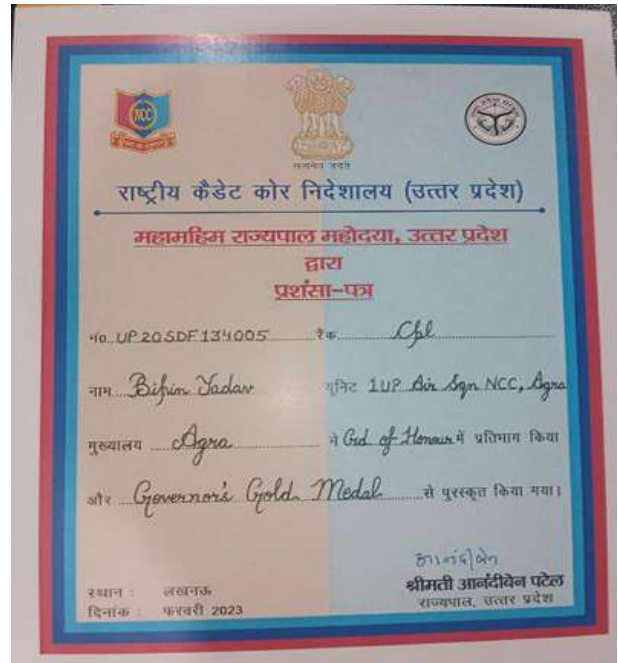 NCC
सत्यमेव जयते
राष्ट्रीय कैडेट कोर निदेशालय (उत्तर प्रदेश)
महामहिम राज्यपाल महोदया, उत्तर प्रदेश
द्वारा
प्रशंसा-पत्र
नं0 UP20SDF134005 रैंक Cpl
नाम Bipin Yadav यूनिट 1UP Air Sqn NCC, Agra
मुख्यालय Agra ने Grd of Honour में प्रतिभाग किया
और Governor's Gold Medal से पुरस्कृत किया गया।
आनंदीबेन
श्रीमती आनंदीबेन पटेल
राज्यपाल, उत्तर प्रदेश
स्थान : लखनऊ
दिनांक : फरवरी 2023